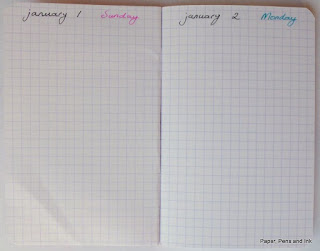 january 1 Sunday
january 2 Monday
Paper, Pens and Ink